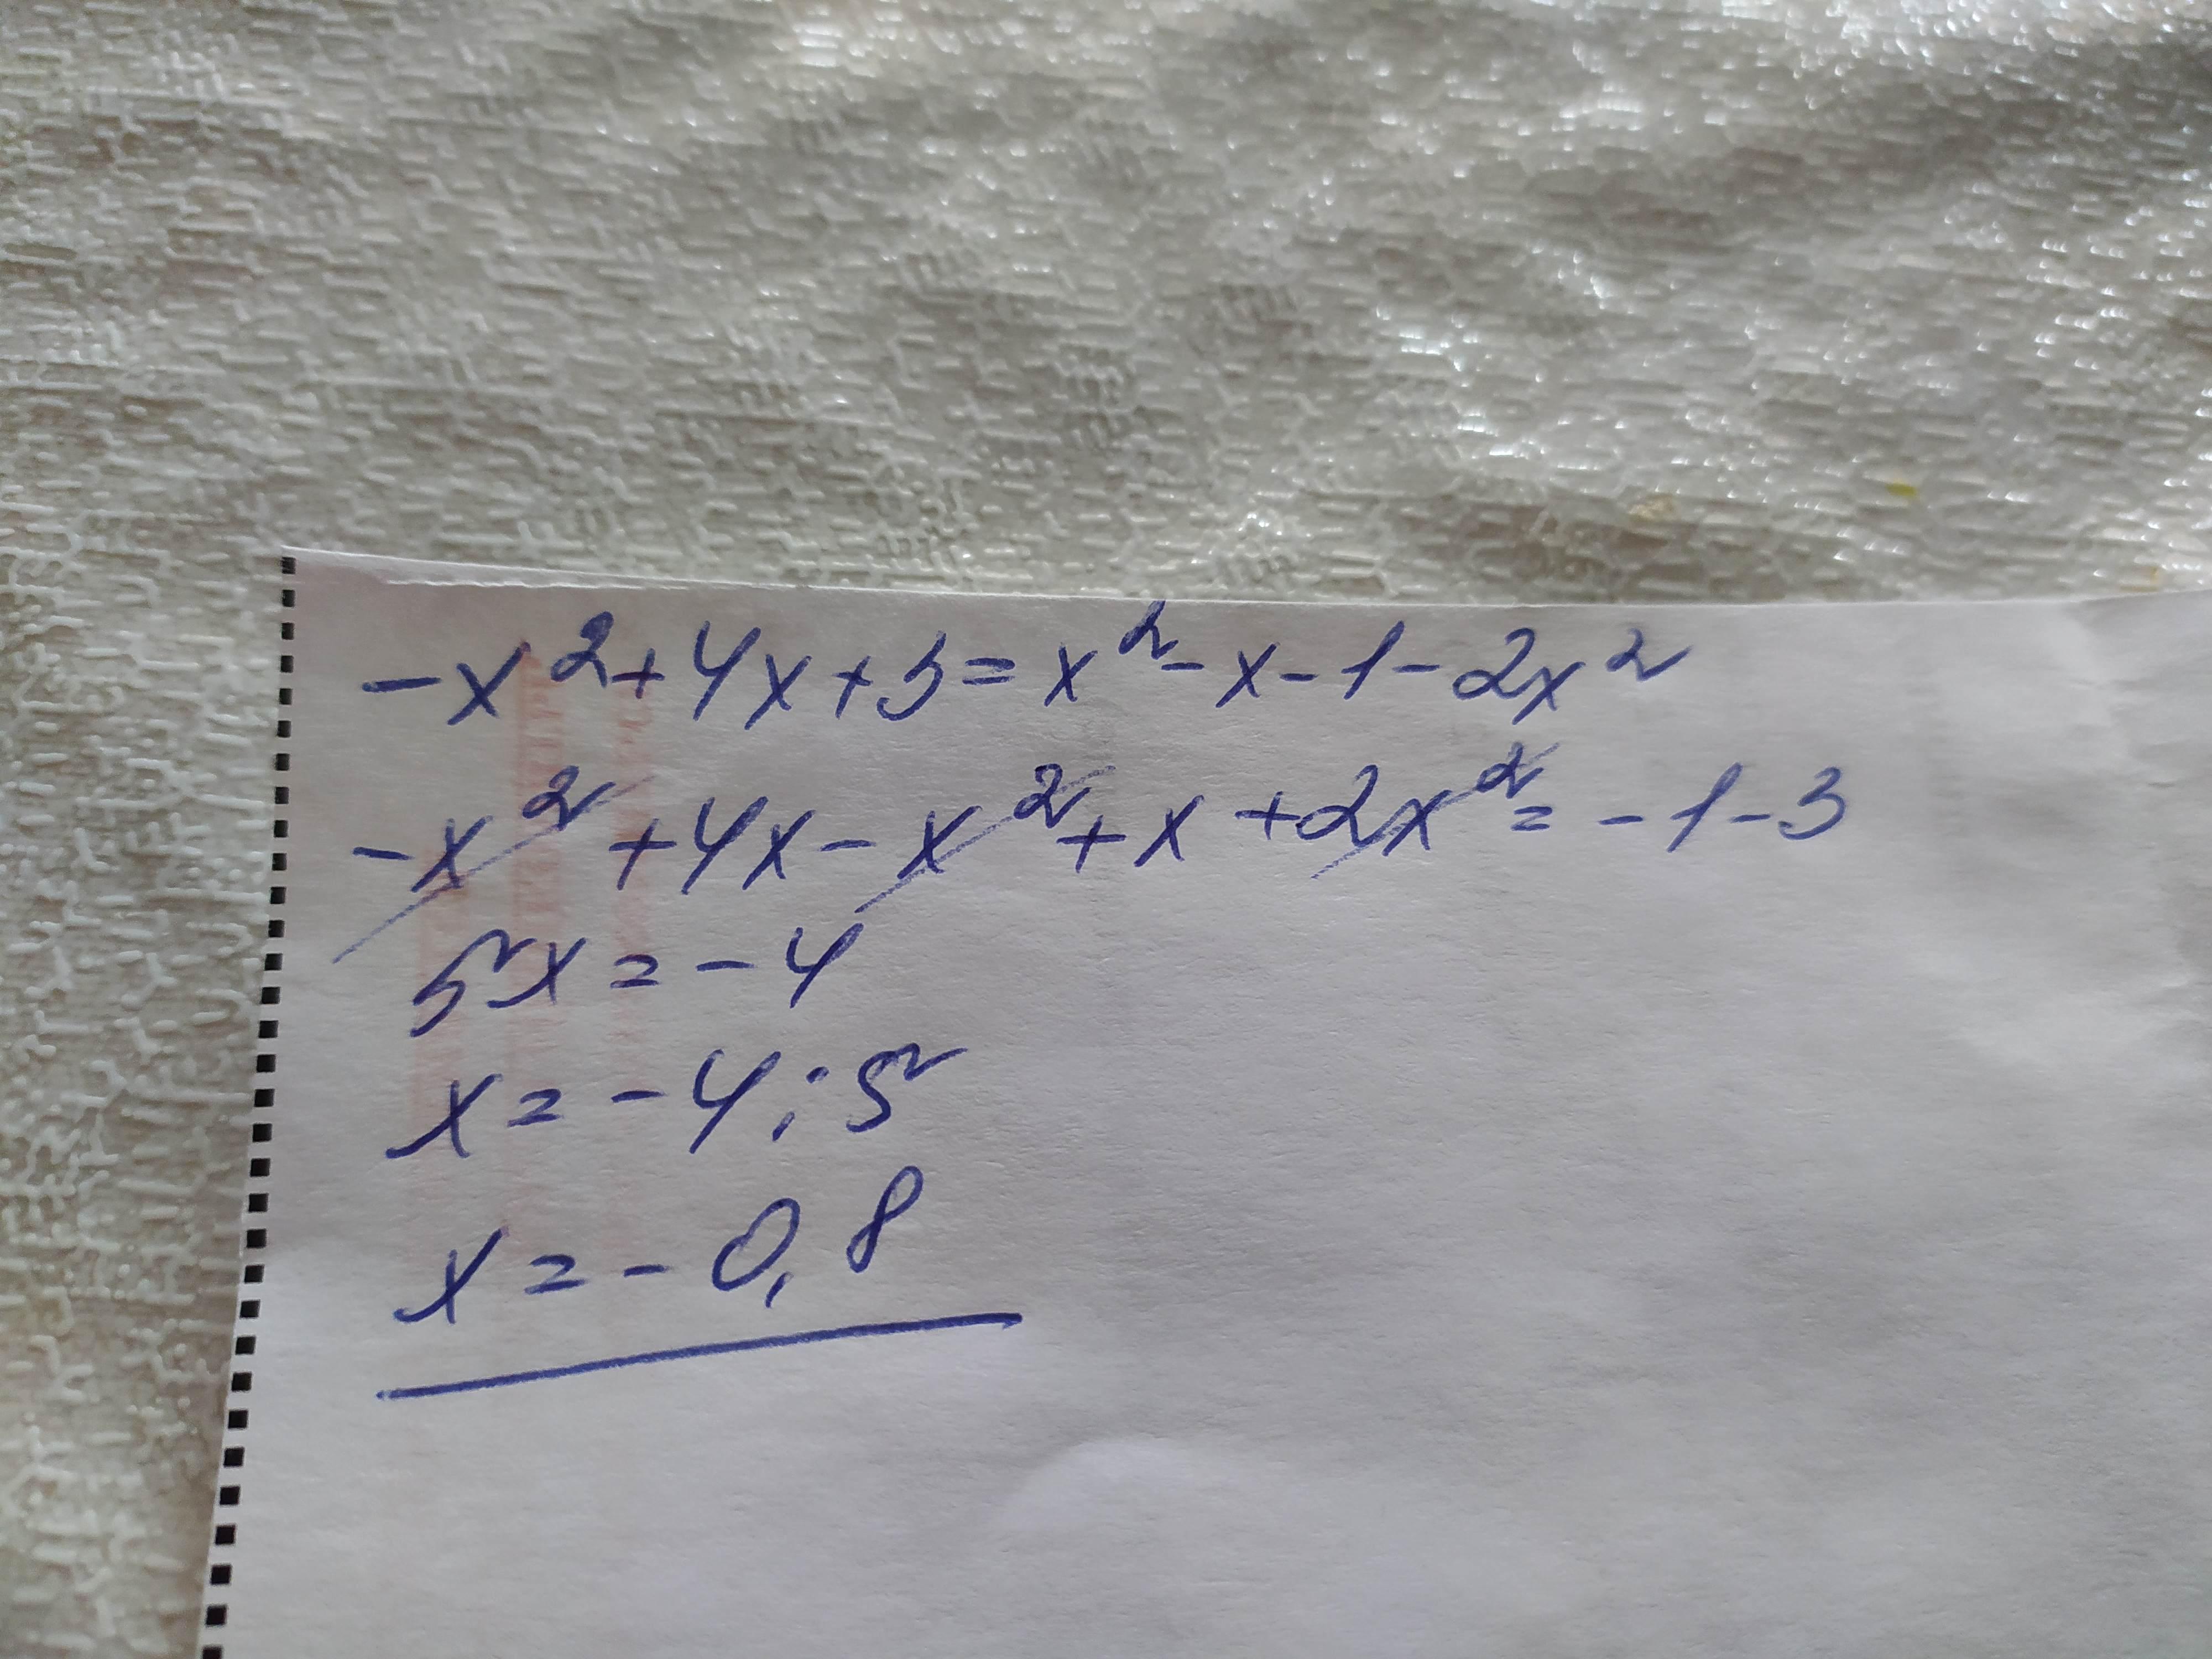 -x²+4x+3=x²-x-1-2x²
-x²+4x-x²+x+2x²=-1-3
5x=-4
x=-4:5
x=-0,8